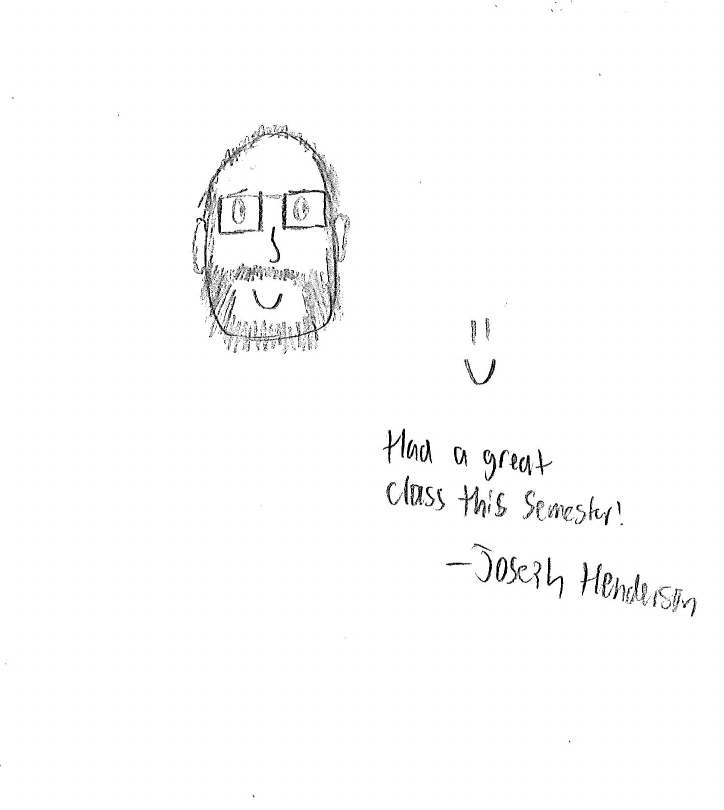 Had a great
class this semester!
—Joseph Henderson